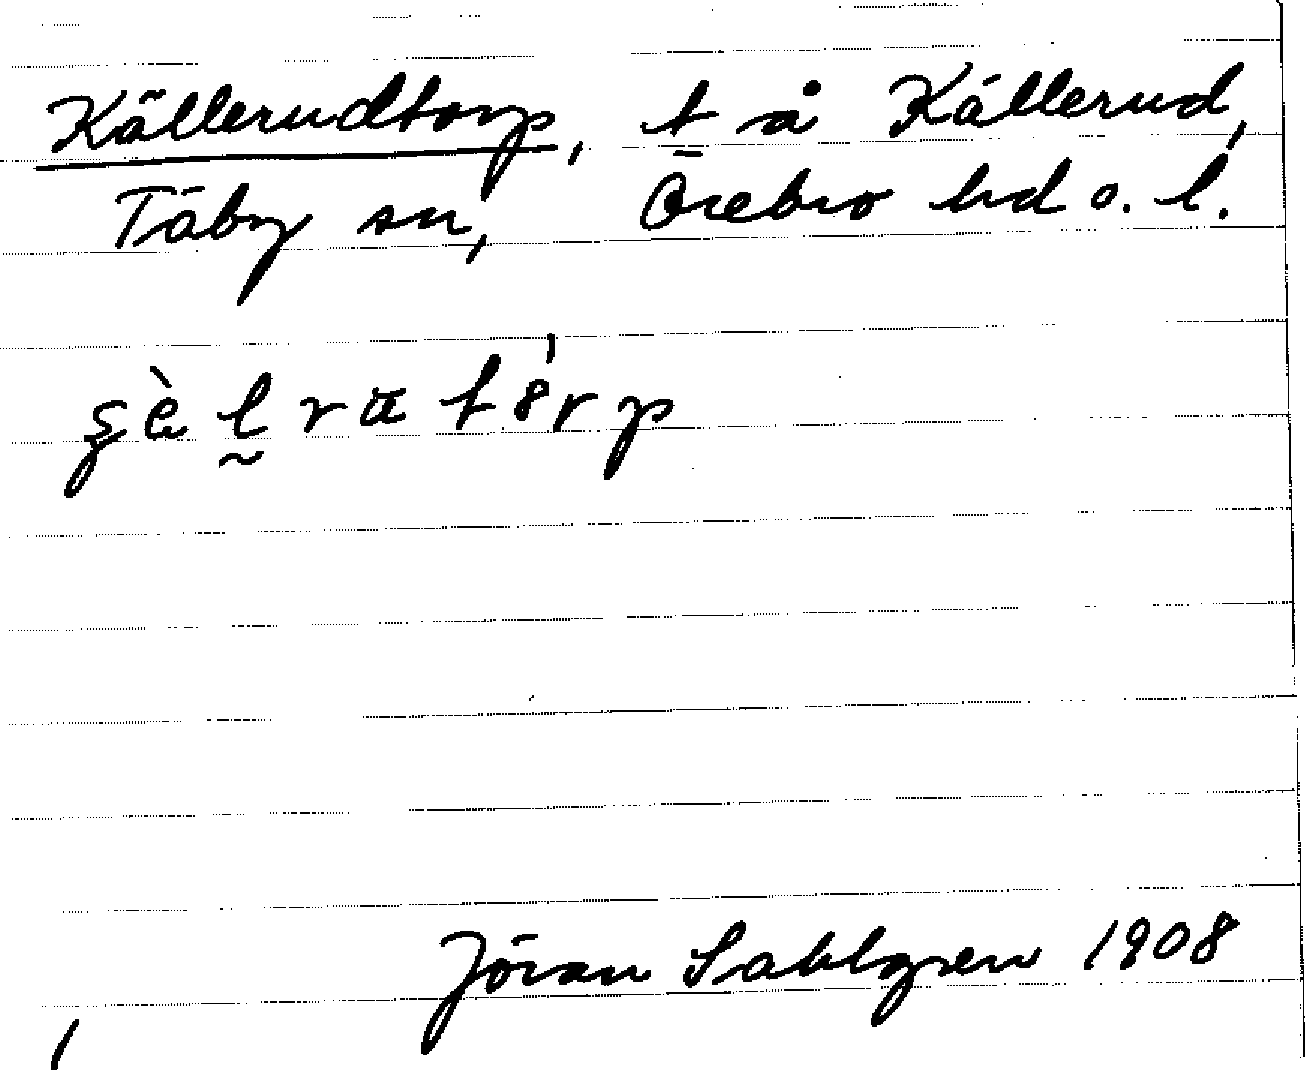 Källerudtorp, t å Källerud,
Täby sn, Örebro hd o. l.
Jöran Sahlgren 1908